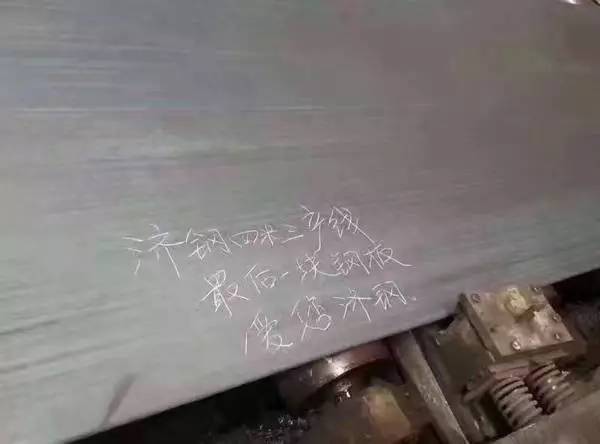 济钢四米三产线
最后一块钢板
爱您济钢。